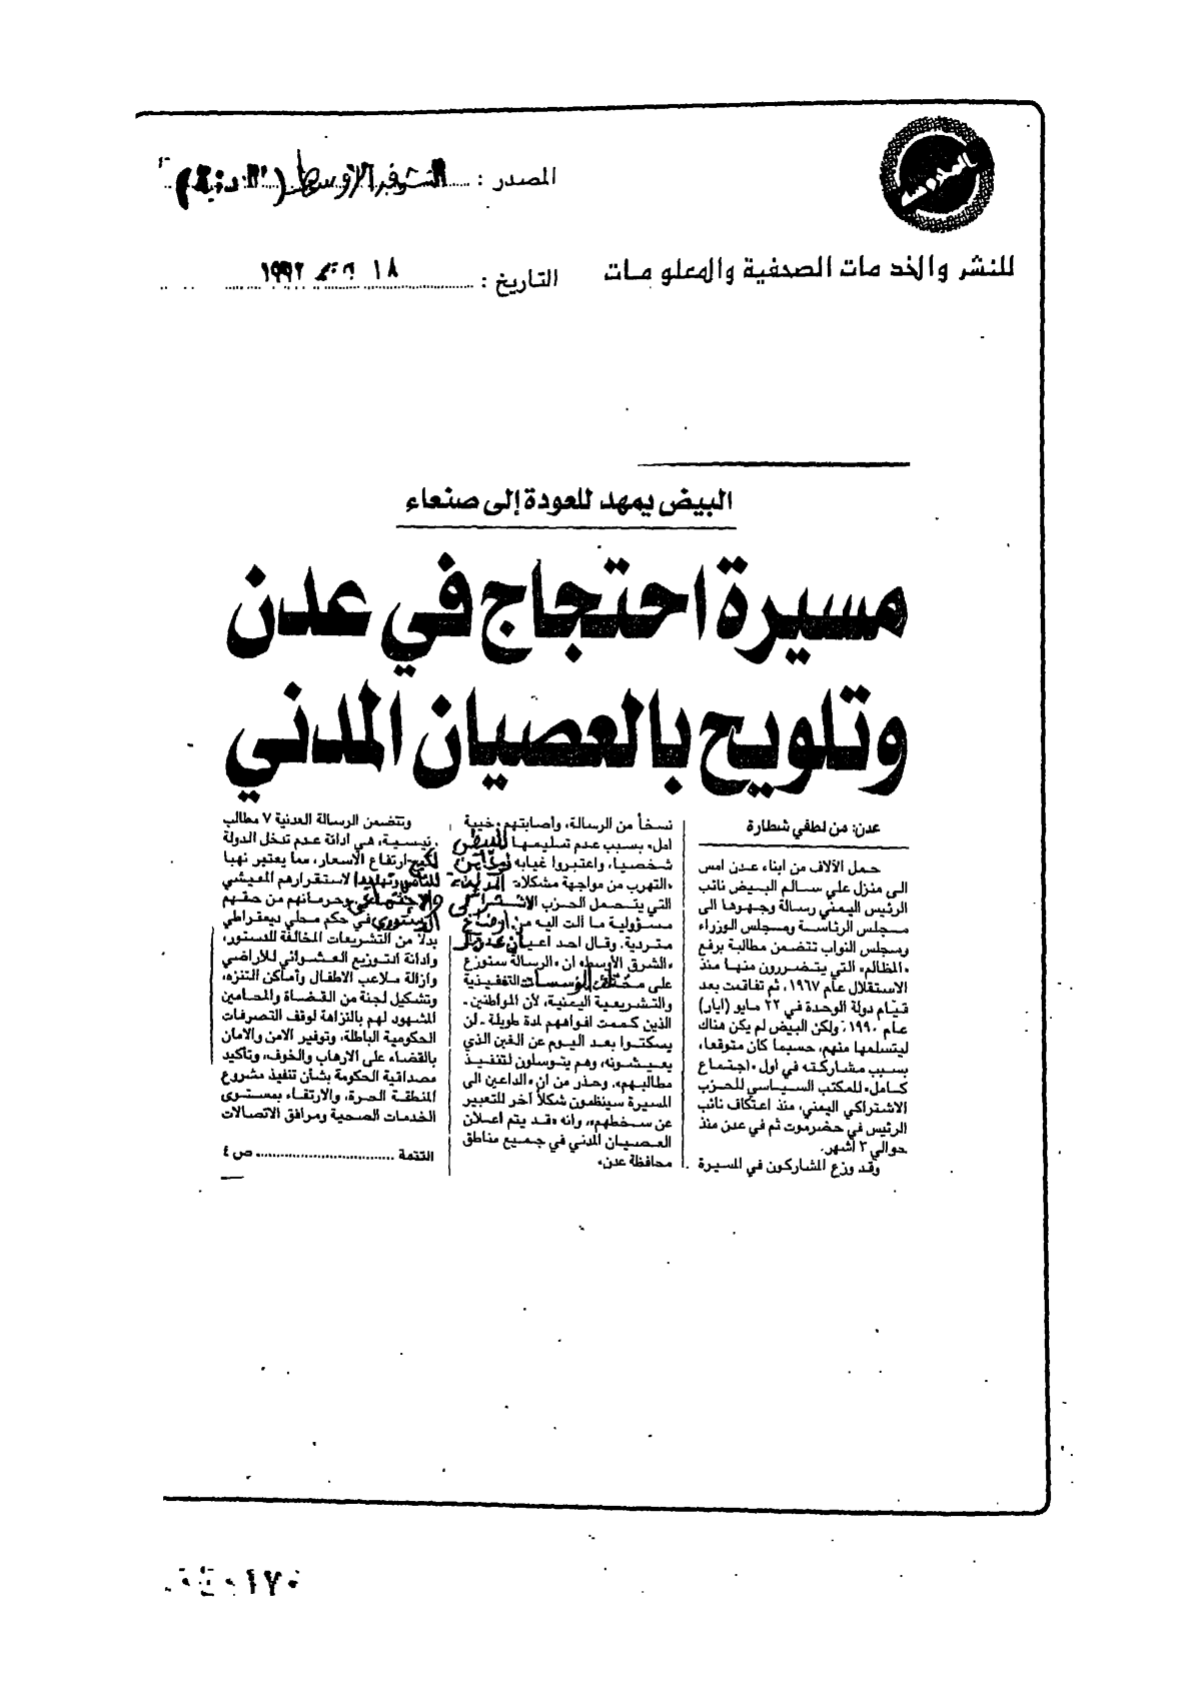 المصدر : الشرق الأوسط (اللندنية)
للنشر والخدمات الصحفية والمعلومات
التاريخ : ١٨ ١٩٩٢
البيض يمهد للعودة إلى صنعاء
مسيرة احتجاج في عدن
وتلويح بالعصيان المدني
عدن: من لطفي شطارة
حمل الآلاف من ابناء عدن امس
الى منزل علي سالم البيض نائب
الرئيس اليمني رسالة وجهوها الى
مجلس الرئاسة ومجلس الوزراء
ومجلس النواب تتضمن مطالبة برفع
«المظالم» التي يتضررون منها منذ
الاستقلال عام ١٩٦٧، ثم تفاقمت بعد
قيام دولة الوحدة في ٢٢ مايو (ايار)
عام ١٩٩٠. ولكن البيض لم يكن هناك
ليتسلمها منهم، حسبما كان متوقعا،
بسبب مشاركته في اول «اجتماع
كامل» للمكتب السياسي للحزب
الاشتراكي اليمني، منذ اعتكاف نائب
الرئيس في حضرموت ثم في عدن منذ
حوالي ٣ اشهر.
وقد وزع المشاركون في المسيرة
نسخاً من الرسالة، وأصابتهم «خيبة
امل» بسبب عدم تسليمها للبيض
شخصيا، واعتبروا غيابه
«التهرب من مواجهة مشكلات
التي يتحمل الحزب الاشتراكي
مسؤولية ما آلت اليه من اوضاع
متردية. وقال احد اعيان عدن لـ
«الشرق الأوسط» ان «الرسالة ستوزع
على مختلف المؤسسات التنفيذية
والتشريعية اليمنية، لأن المواطنين -
الذين كممت افواههم لمدة طويلة - لن
يسكتوا بعد اليوم عن الغبن الذي
يعيشونه، وهم يتوسلون لتنفيذ
مطالبهم». وحذر من ان «الداعين الى
المسيرة سينظمون شكلاً آخر للتعبير
عن سخطهم»، وانه «قد يتم اعلان
العصيان المدني في جميع مناطق
محافظة عدن»
وتتضمن الرسالة العدنية ٧ مطالب
رئيسية، هي ادانة عدم تدخل الدولة
لكبح ارتفاع الاسعار، مما يعتبر نهبا
للناس وتهديدا لاستقرارهم المعيشي
والاجتماعي وحرمانهم من حقهم
الدستوري في حكم محلي ديمقراطي
بدلاً من التشريعات المخالفة للدستور،
وادانة التوزيع العشوائي للاراضي
وازالة ملاعب الاطفال وأماكن التنزه،
وتشكيل لجنة من القضاة والمحامين
المشهود لهم بالنزاهة لوقف التصرفات
الحكومية الباطلة، وتوفير الامن والامان
بالقضاء على الارهاب والخوف، وتأكيد
مصداقية الحكومة بشأن تنفيذ مشروع
المنطقة الحرة، والارتقاء بمستوى
الخدمات الصحية ومرافق الاتصالات
التتمة ........ ص ٤